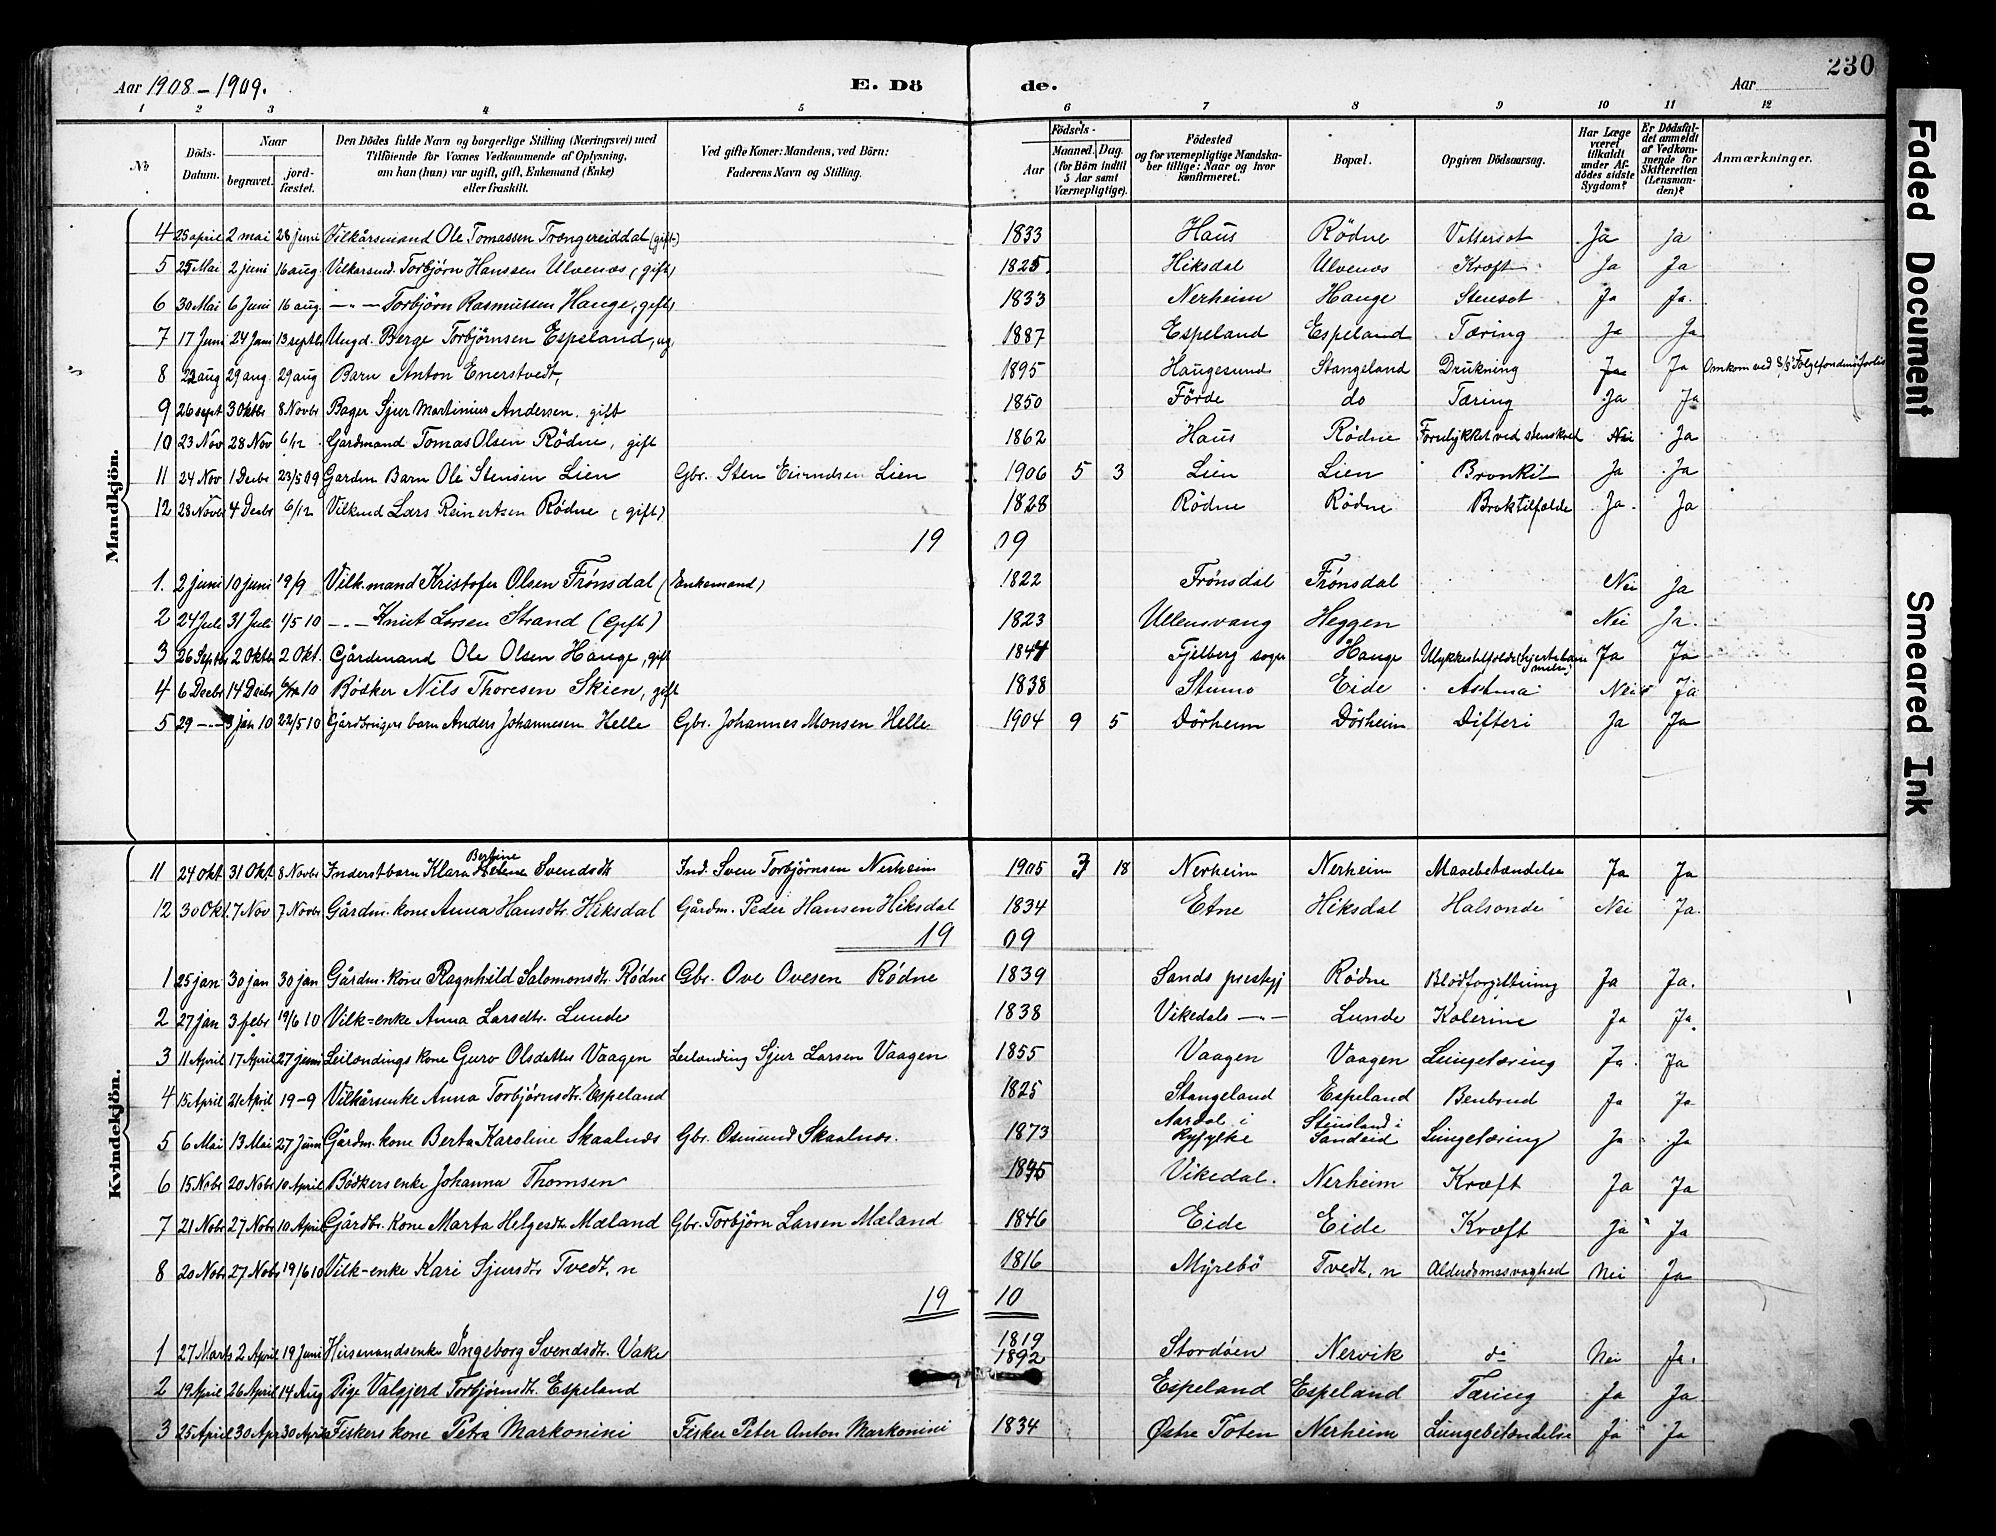 230
Aar 1908 – 1909. E. Dö de. Aar
1 2 3 4 5 6 7 8 9 10 11 12
No Döds-Datum. Naar begravet. jordfæstet. Den Dödes fulde Navn og borgerlige Stilling (Næringsvei) med Tilföiende for Voxnes Vedkommende af Oplysning, om han (hun) var ugift, gift, Enkemand (Enke) eller fraskilt. Ved gifte Koner: Mandens, ved Börn: Faderens Navn og Stilling. Födsels- Aar Maaned. Dag. (for Börn indtil 5 Aar samt Værnepligtige). Födested og for værnepligtige Mandskaber tillige: Naar og hvor konfirmeret. Bopæl. Opgiven Dödsaarsag. Har Læge været tilkaldt under Afdödes sidste Sygdom? Er Dödsfaldet anmeldt af Vedkommende for Skifteretten (Lensmanden)? Anmærkninger.
Mandkjön.
4 25 april 2 mai 28 juni Vilkårsmand Ole Tomassen Trængereiddal (gift) 1833 Haus Rödne Vattersot Ja Ja
5 25 Mai 2 juni 16 aug. Vilkarsmd. Torbjörn Hanssen Ulvenæs (gift) 1825 Hiksdal Ulvenæs Kræft Ja Ja
6 30 Mai 6 Juni 16 aug. –„– Torbjörn Rasmussen Hauge, gift 1833 Nerheim Hauge Stensot Ja Ja.
7 17 Juni 24 Juni 13 septbr Ungd. Berge Torbjörnsen Espeland, ug. 1887 Espeland Espeland Tæring Ja Ja
8 22 aug 29 aug. 29 aug Barn Anton Enerstvedt, 1895 Haugesund Stangeland Drukning Ja Ja Omkom ved S/S Folgefondens forlis
9 26 sept 3 Oktbr 8 Novbr Bager Sjur Martinius Andersen. gift 1850 Förde do Tæring Ja Ja
10 23 Nov 28 Nov 6/12 Gardmand Tomas Olsen Rödne, gift 1862 Haus Rödne Forulykket ved stenskred Nei Ja
11 24 Nov 1 Decbr 23/5 09 Gardm Barn Ole Stensen Lien Gbr. Sten Eivindsen Lien 1906 5 3 Lien Lien Bronkit Ja Ja
12 28 Novbr 4 Decbr 6/12 Vilkmd Lars Reinertsen Rödne (gift) 1828 Rödne Rödne Broktilfælde Ja. Ja
19 09
1. 2 juni 10 juni 19/9 Vilk.mand Kristofer Olsen Frönsdal (Enkemand) 1822 Frönsdal Frönsdal Nei Ja
2 24 Juli 31 Juli 1/5 10 –„– Knut Larsen Strand (Gift) 1823 Ullensvang Heggen Nei Ja.
3 26 Septbr 2 Oktbr 2 Okt. Gårdmand Ole Olsen Hauge, gift 1844 Fjelberg sogn Hauge Ulykkestilfælde Ja Ja
4 6 Decbr 14 Decbr 10 Bödker Nils Thoresen Skien, gift 1838 Stumo Eide Astma Nei Ja
5 29 –„– 3 jan 10 22/5 10 Gårdbrugers barn Anders Johannesen Helle Gbr. Johannes Monsen Helle. 1904 9 5 Dörheim Dörheim Difteri Ja Ja
Kvindekjön.
11 24 Okt 31 Okt 8 Novbr Inderstbarn Klara Bertine Helene Svendsdtr Ind. Sven Torbjörnsen Nerheim 1905 3 18 Nerheim Nerheim Mavebetændelse Ja Ja
12 30 Okt. 7 Nov 7 Novbr Gårdm. kone Anna Hansdtr. Hiksdal Gårdm. Peder Hansen Hiksdal 1834 Etne Hiksdal Halsonde Nei Ja.
19 09
1 25 jan 30 jan 30 jan Gårdm. kone Ragnhild Salomonsdtr. Rødne Gbr. Ove Ovesen Rødne 1839 Sands prestegj Rødne Blodforgiftning Ja Ja.
2 27 jan 3 febr 19/6 10 Vilk=enke Anna Larsdtr. Lunde 1838 Vikedals –„– Lunde Kolerine Ja Ja.
3 11 April 17 April 27 juni Leilændings kone Guro Olsdatter Vaagen Leilænding Sjur Larsen Vaagen 1855 Vaagen Vaagen Lungetæring Ja. Ja
4 15 April 21 April 19-9 Vilkårsenke Anna Torbjörnsdtr. Espeland 1825 Stangeland Espeland Benbrud Ja Ja
5 6 Mai 13 Mai 27 Juni Gårdm. kone Berta Karoline Skaalnes Gbr. Osmund Skaalnes. 1873 Aardal i Ryfylke Stensland i Sandeid Lungetæring Ja Ja
6 15 Nobr 20 Nobr 10 April Bödkers enke Johanna Thomsen Vikedal. Nerheim Kræft Ja Ja
7 21 Nobr 27 Nobr 10 April Gårdbr. Kone Marta Helgesdtr. Mæland Gbr. Torbjörn Larsen Mæland 1846 Eide Eide Kræft Ja Ja
8 20 Nobr 27 Nobr 19/6 10 Vilk-enke Kari Sjursdtr Tvedt, n 1816 Myrebö Tvedt, n Alderdomssvaghed Nei Ja
19 10
1 27 Marts 2 April 19 Juni Husmandsenke Ingeborg Svendsdtr. Vake 1819 Stordöen Nervik do Nei Ja.
2 19 April 26 April 14 Aug Pige Valgjerd Torbjörnsdtr. Espeland 1892 Espeland Espeland Tæring Ja Ja.
3 25 April 30 Apr 30 April Fiskers kone Petra Markonini Fisker Peter Anton Markonini 1834 Østre Toten Nerheim Lungebetændelse Ja Ja
Faded Document
Smeared Ink